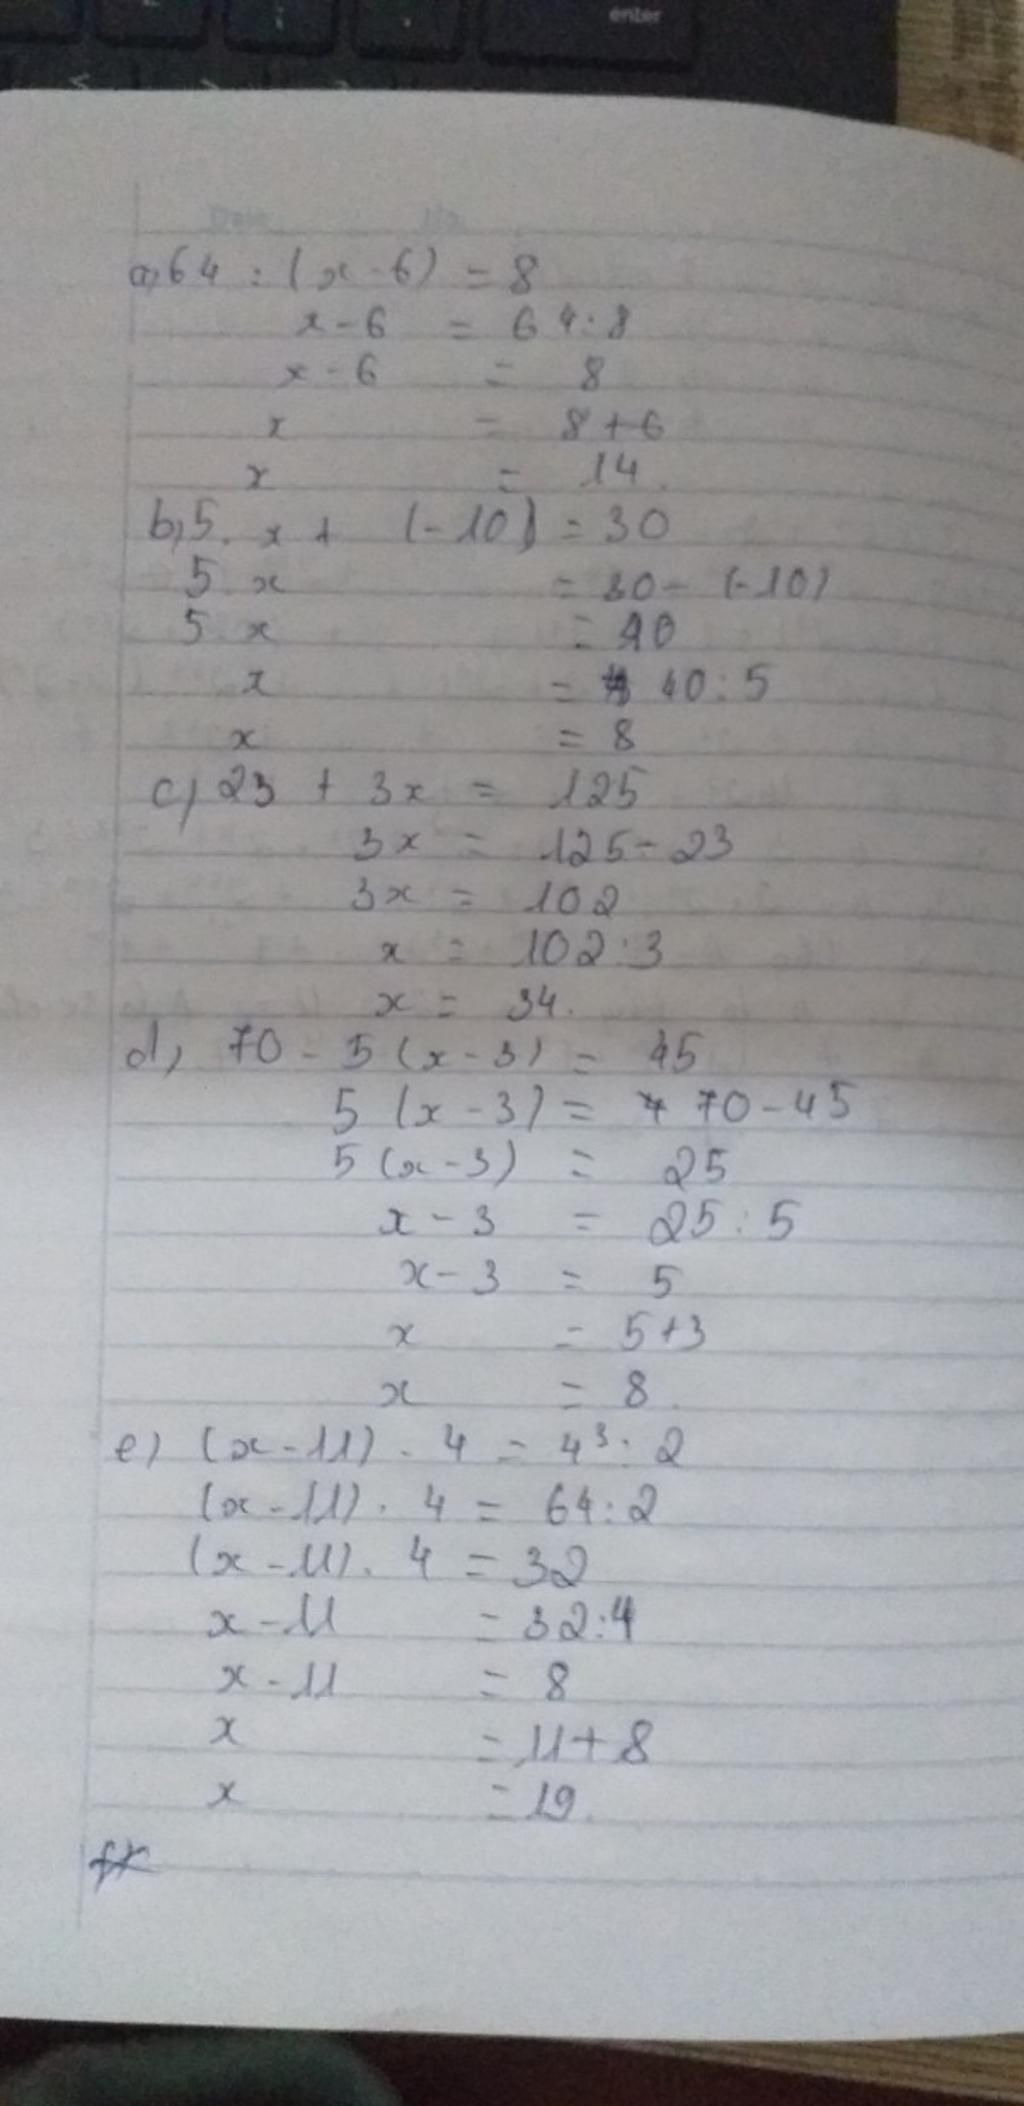 enter
a, 64 : (x - 6) = 8
x - 6 = 64 : 8
x - 6 = 8
x = 8 + 6
x = 14.
b, 5. x + (-10) = 30
5. x = 30 - (-10)
5. x = 40
x = 40 : 5
x = 8
c, 23 + 3x = 125
3x = 125 - 23
3x = 102
x = 102 : 3
x = 34.
d, 70 - 5 (x - 3) = 45
5 (x - 3) = 70 - 45
5 (x - 3) = 25
x - 3 = 25 : 5
x - 3 = 5
x = 5 + 3
x = 8.
e) (x - 11) . 4 = 4³ : 2
(x - 11) . 4 = 64 : 2
(x - 11) . 4 = 32
x - 11 = 32 : 4
x - 11 = 8
x = 11 + 8
x = 19.